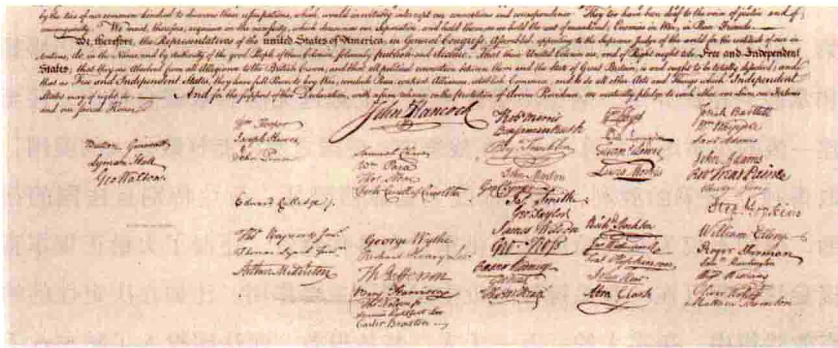 by the ties of our common kindred to disavow these usurpations, which, would inevitably interrupt our connections and correspondence. They too have been deaf to the voice of justice and of
consanguinity. We must, therefore, acquiesce in the necessity, which denounces our Separation, and hold them, as we hold the rest of mankind, Enemies in War, in Peace Friends.
We, therefore, the Representatives of the united States of America, in General Congress, Assembled, appealing to the Supreme Judge of the world for the rectitude of our in
tentions, do, in the Name, and by Authority of the good People of these Colonies, solemnly publish and declare, That these United Colonies are, and of Right ought to be Free and Independent
States; that they are Absolved from all Allegiance to the British Crown, and that all political connection between them and the State of Great Britain, is and ought to be totally dissolved; and
that as Free and Independent States, they have full Power to levy War, conclude Peace, contract Alliances, establish Commerce, and to do all other Acts and Things which Independent
States may of right do. And for the support of this Declaration, with a firm reliance on the protection of divine Providence, we mutually pledge to each other our Lives, our Fortunes
and our sacred Honor.
John Hancock
Button Gwinnett
Lyman Hall
Geo Walton
Wm Hooper
Joseph Hewes
John Penn
Edward Rutledge
Thos Heyward Junr
Thomas Lynch Junr
Arthur Middleton
Samuel Chase
Wm Paca
Thos Stone
Charles Carroll of Carrollton
George Wythe
Richard Henry Lee
Th Jefferson
Benja Harrison
Thos Nelson jr
Francis Lightfoot Lee
Carter Braxton
Robt Morris
Benjamin Rush
Benja Franklin
John Morton
Geo Clymer
Jas Smith
Geo Taylor
James Wilson
Geo Ross
Caesar Rodney
Tho M:Kean
Lewis Morris
Richd Stockton
Fras Hopkinson
John Hart
Abra Clark
Josiah Bartlett
Wm Whipple
Saml Adams
John Adams
Robt Treat Paine
Step Hopkins
William Ellery
Roger Sherman
Saml Huntington
Wm Williams
Oliver Wolcott
Matthew Thornton